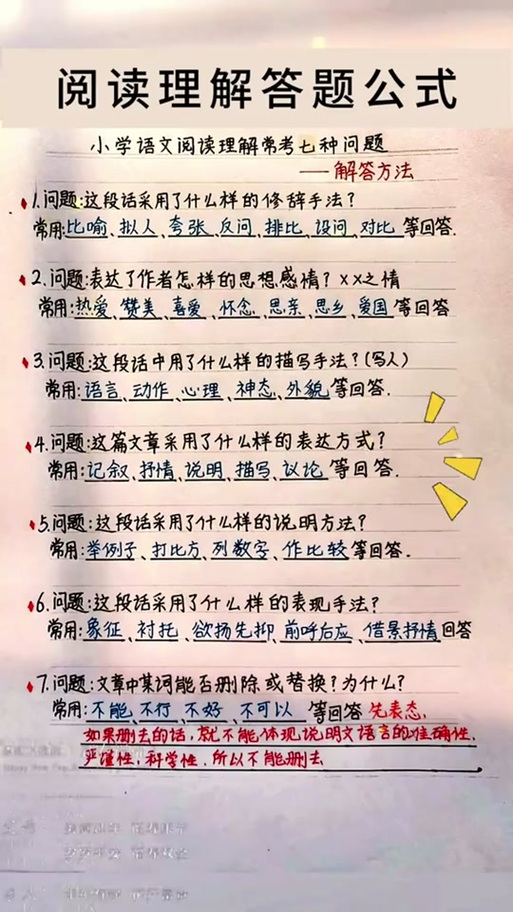 阅读理解答题公式
小学语文阅读理解常考七种问题
——解答方法
1.问题:这段话采用了什么样的修辞手法?
常用:比喻、拟人、夸张、反问、排比、设问、对比等回答.
2.问题:表达了作者怎样的思想感情? XX之情
常用:热爱、赞美、喜爱、怀念、思亲、思乡、爱国等回答
3.问题:这段话中用了什么样的描写手法?(写人)
常用:语言、动作、心理、神态、外貌等回答.
4.问题:这篇文章采用了什么样的表达方式?
常用:记叙、抒情、说明、描写、议论等回答.
5.问题:这段话采用了什么样的说明方法?
常用:举例子、打比方、列数字、作比较等回答.
6.问题:这段话采用了什么样的表现手法?
常用:象征、衬托、欲扬先抑、前呼后应、借景抒情回答
7.问题:文章中某词能否删除或替换?为什么?
常用:不能、不行、不好、不可以 等回答先表态,
如果删去的话,就不能体现说明文语言的准确性,
严谨性,科学性,所以不能删去